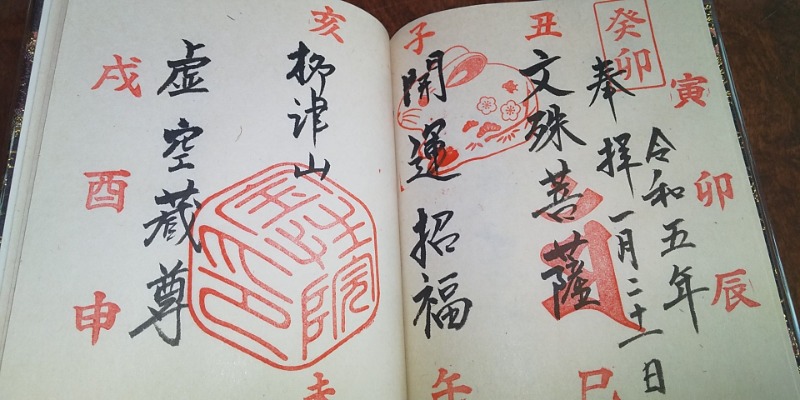 癸卯
令和五年
奉拝一月二十一日
文殊菩薩
開運招福
柳津山
虚空蔵尊
子
丑
寅
卯
辰
巳
午
未
申
酉
戌
亥